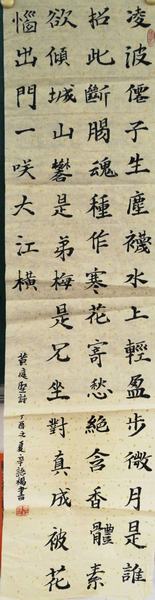 凌波僊子生塵襪水上輕盈步微月是誰
招此斷腸魂種作寒花寄愁絕含香體素
欲傾城山礬是弟梅是兄坐對真成被花
惱出門一咲大江橫
黄庭堅詩丁酉之夏書